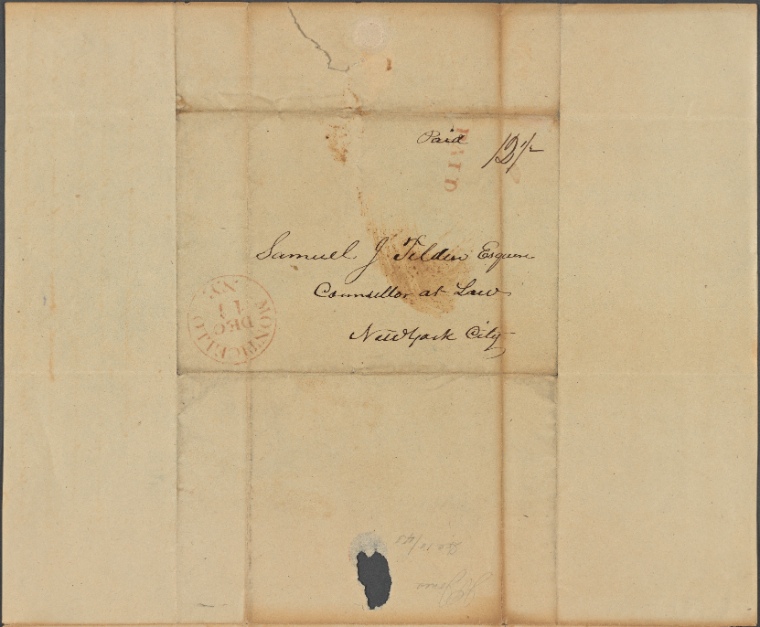 Paid
PAID
Samuel J Tilden Esquire
Counsellor at Law
New York City
MONTICELLO N.Y.
DEC